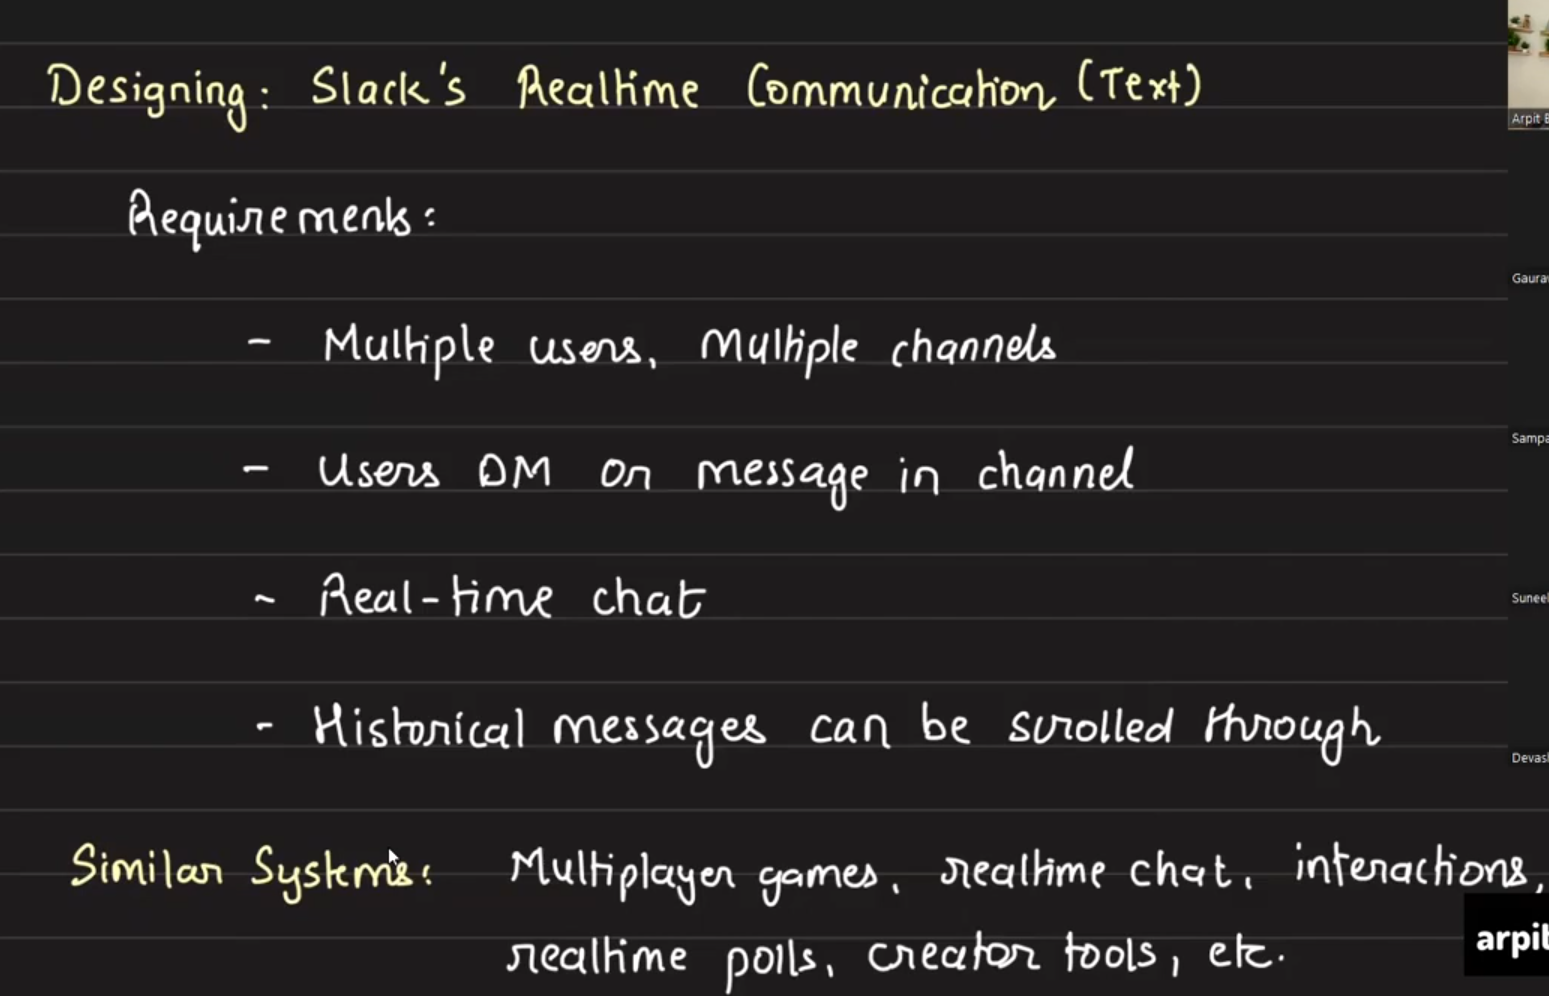 Designing: Slack's Realtime Communication (Text)
Arpit B
Requirements:
Gaurav
- Multiple users, Multiple channels
Sampa
- Users DM or message in channel
Suneel
~ Real-time chat
- Historical messages can be scrolled through
Devash
Similar Systems: Multiplayer games, realtime chat, interactions,
realtime polls, creator tools, etc.
arpit